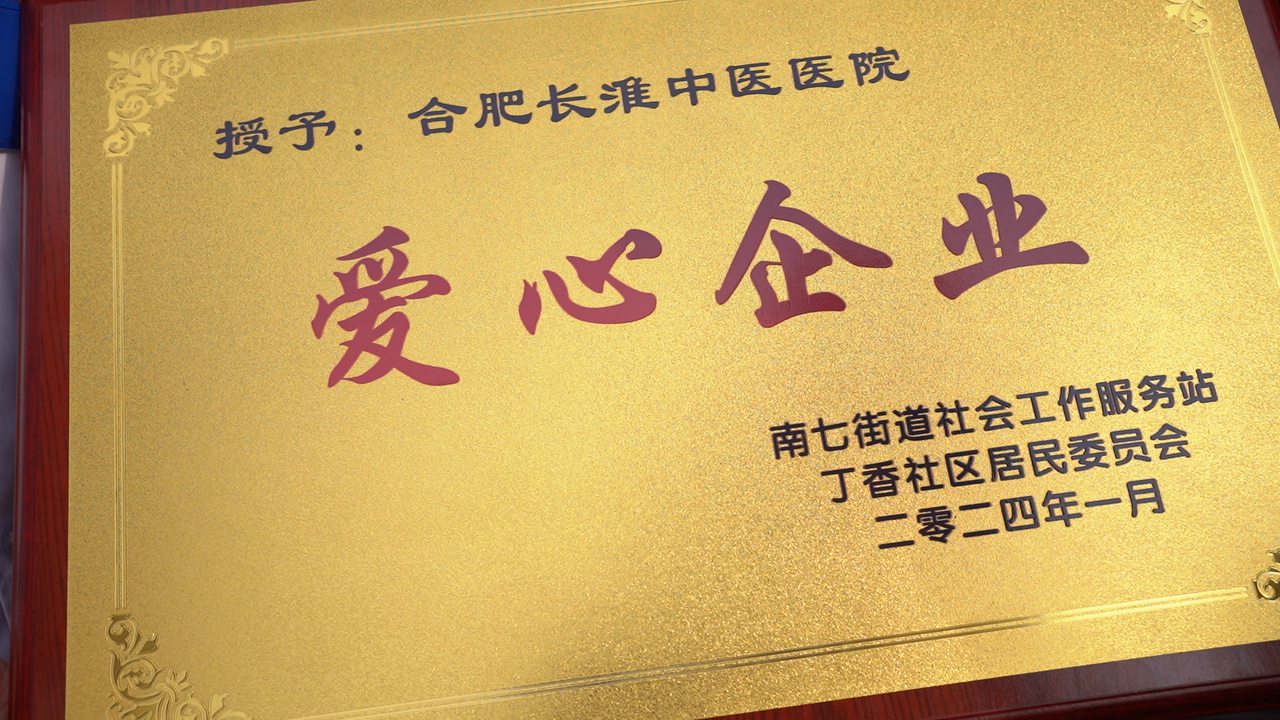 授予：合肥长淮中医医院
爱心企业
南七街道社会工作服务站
丁香社区居民委员会
二零二四年一月